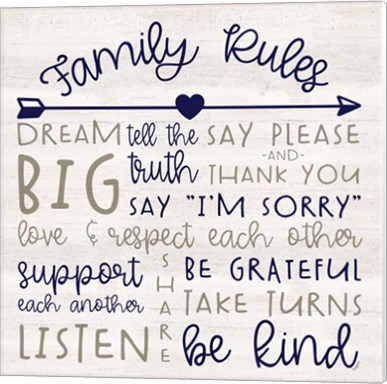 Family Rules
DREAM BIG
tell the truth
SAY PLEASE
-AND-
THANK YOU
SAY "I'M SORRY"
love & respect each other
support
each another
SHARE
BE GRATEFUL
TAKE TURNS
LISTEN
be kind